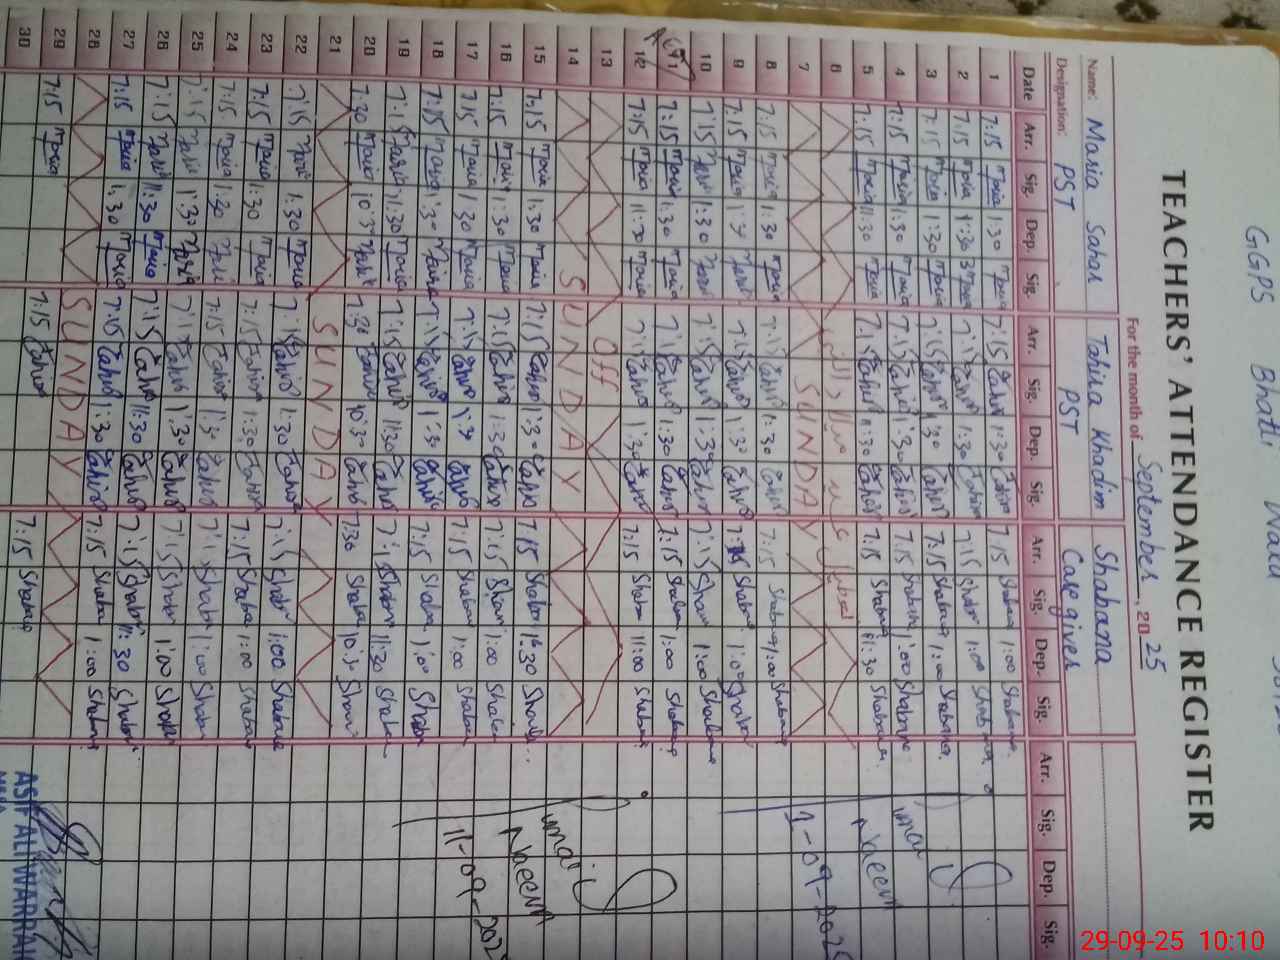 GGPS Bhatti
TEACHERS' ATTENDANCE REGISTER
For the month of September, 2025
Name: Maria Sahar Tahira Khadim Shabana
Designation: PST PST Care giver
Date Arr. Sig. Dep. Sig. Arr. Sig. Dep. Sig. Arr. Sig. Dep. Sig. Arr. Sig. Dep. Sig.
1 7:15 Maria 1:30 Maria 7:15 Tahira 1:30 Tahira 7:15 Shabana 1:00 Shabana
2 7:15 Maria 1:30 Maria 7:15 Tahira 1:30 Tahira 7:15 Shabana 1:00 Shabana
3 7:15 Maria 1:30 Maria 7:15 Tahira 1:30 Tahira 7:15 Shabana 1:00 Shabana
4 7:15 Maria 1:30 Maria 7:15 Tahira 1:30 Tahira 7:15 Shabana 1:00 Shabana
5 7:15 Maria 11:30 Maria 7:15 Tahira 11:30 Tahira 7:15 Shabana 11:30 Shabana
6
7 SUNDAY
8 7:15 Maria 1:30 Maria 7:15 Tahira 1:30 Tahira 7:15 Shabana 1:00 Shabana
9 7:15 Maria Maria 7:15 Tahira 1:30 Tahira Shabana 1:00 Shabana
10 7:15 Maria 1:30 Maria 7:15 Tahira 1:30 Tahira 7:15 Shabana 1:00 Shabana
11 7:15 Maria 1:30 Maria 7:15 Tahira 1:30 Tahira 7:15 Shabana 1:00 Shabana
12 7:15 Maria 11:30 Maria 7:15 Tahira 11:30 Tahira 7:15 Shabana 11:00 Shabana
13 Off
14 SUNDAY
15 7:15 Maria 1:30 Maria 7:15 Tahira 1:30 Tahira 7:15 Shabana 1:30 Shabana
16 7:15 Maria 1:30 Maria 7:15 Tahira 1:30 Tahira 7:15 Shabana 1:00 Shabana
17 7:15 Maria 1:30 Maria 7:15 Tahira 1:30 Tahira 7:15 Shabana 1:00 Shabana
18 7:15 Maria 1:30 Maria 7:15 Tahira 1:30 Tahira 7:15 Shabana 1:00 Shabana
19 7:15 Maria 11:30 Maria 7:15 Tahira 11:30 Tahira 7:15 Shabana 11:30 Shabana
20 7:30 Maria 10:30 Maria 7:30 Tahira 10:30 Tahira 7:30 Shabana 10:30 Shabana
21 SUNDAY
22 7:15 Maria 1:30 Maria 7:15 Tahira 1:30 Tahira 7:15 Shabana 1:00 Shabana
23 7:15 Maria 1:30 Maria 7:15 Tahira 1:30 Tahira 7:15 Shabana 1:00 Shabana
24 7:15 Maria 1:30 Maria 7:15 Tahira 1:30 Tahira 7:15 Shabana 1:00 Shabana
25 7:15 Maria 1:30 Maria 7:15 Tahira 1:30 Tahira 7:15 Shabana 1:00 Shabana
26 7:15 Maria 11:30 Maria 7:15 Tahira 11:30 Tahira 7:15 Shabana 11:30 Shabana
27 7:15 Maria 1:30 Maria 7:15 Tahira 1:30 Tahira 7:15 Shabana 1:00 Shabana
28 SUNDAY
29 7:15 Maria 7:15 Tahira 7:15 Shabana
30
Umair Naeem
1-09-202
Umair Naeem
11-09-202
ASIF ALI WARRAI
29-09-25 10:10